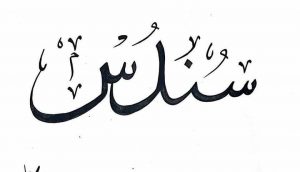 سُندُس